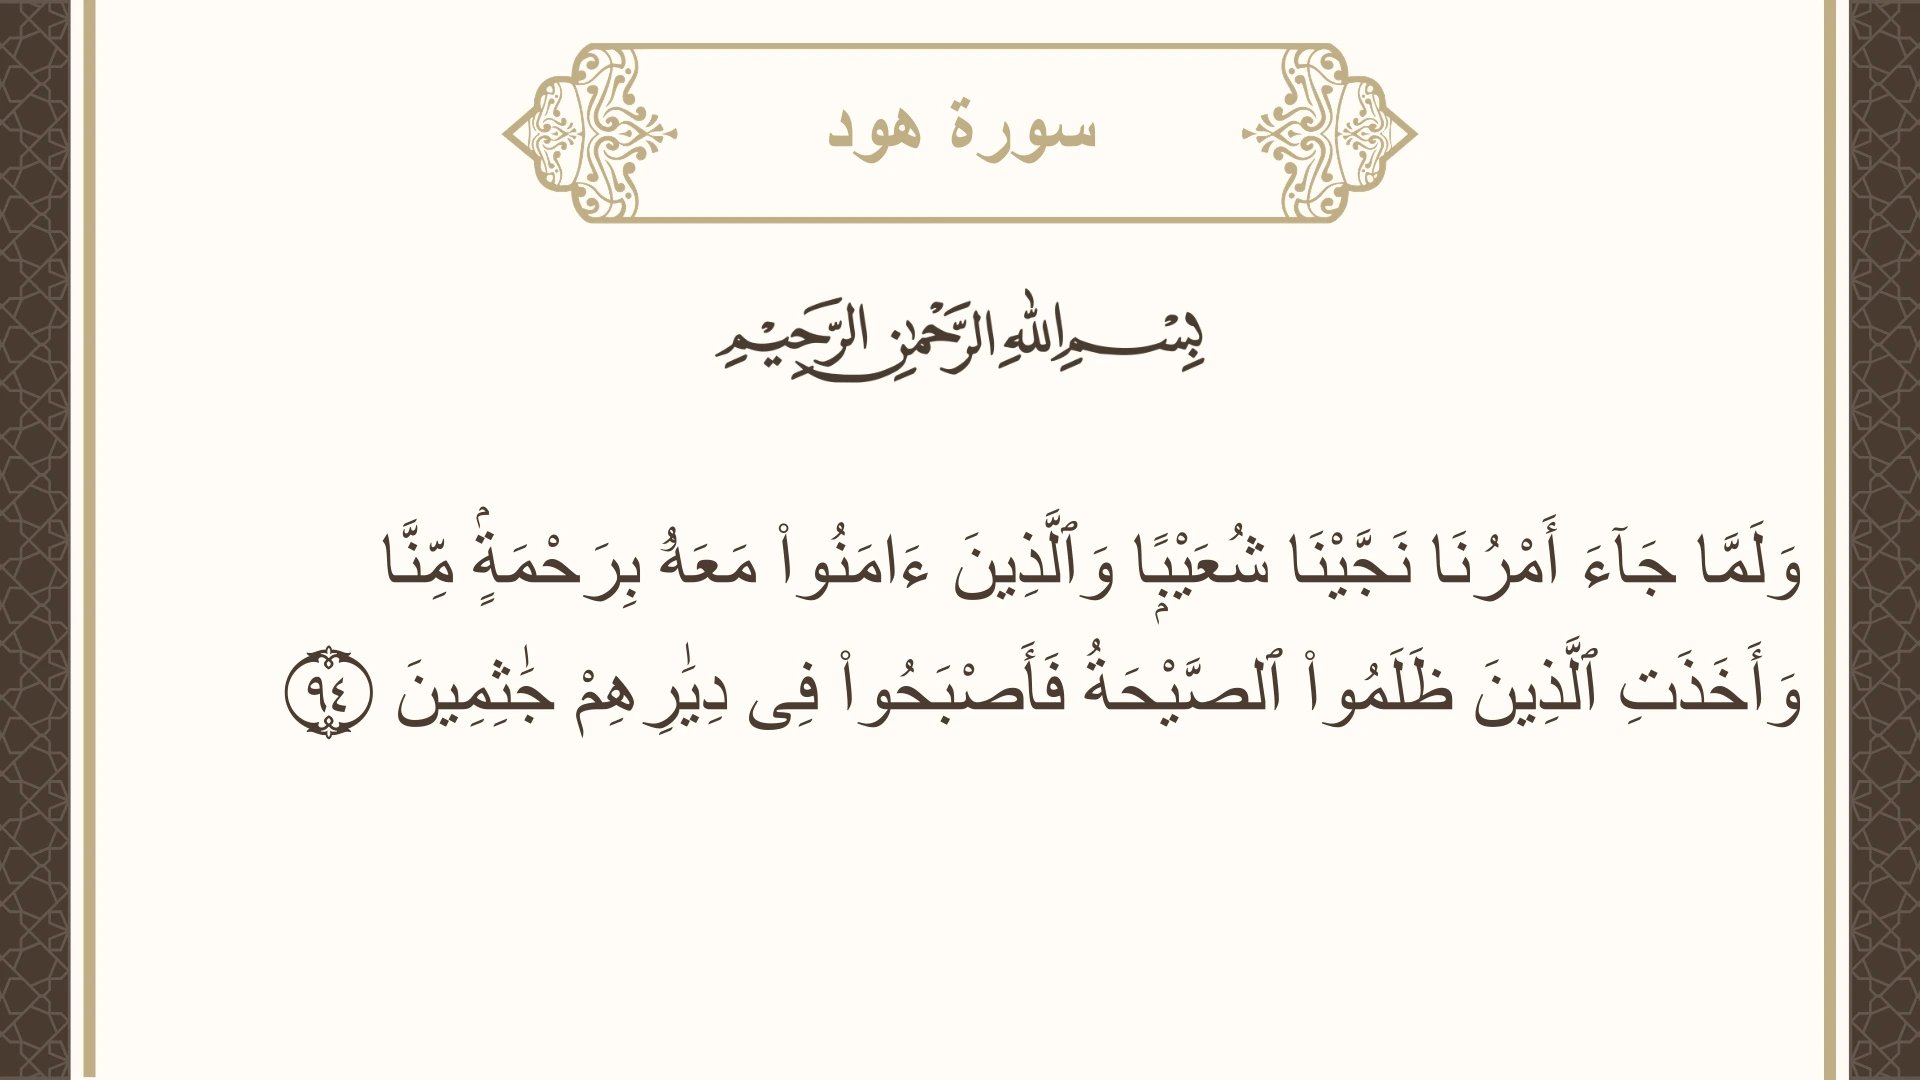 سورة هود
بِسْمِ اللهِ الرَّحْمٰنِ الرَّحِيْمِ
وَلَمَّا جَآءَ أَمْرُنَا نَجَّيْنَا شُعَيْبًۭا وَٱلَّذِينَ ءَامَنُوا۟ مَعَهُۥ بِرَحْمَةٍۢ مِّنَّا
وَأَخَذَتِ ٱلَّذِينَ ظَلَمُوا۟ ٱلصَّيْحَةُ فَأَصْبَحُوا۟ فِى دِيَـٰرِهِمْ جَـٰثِمِينَ ٩٤